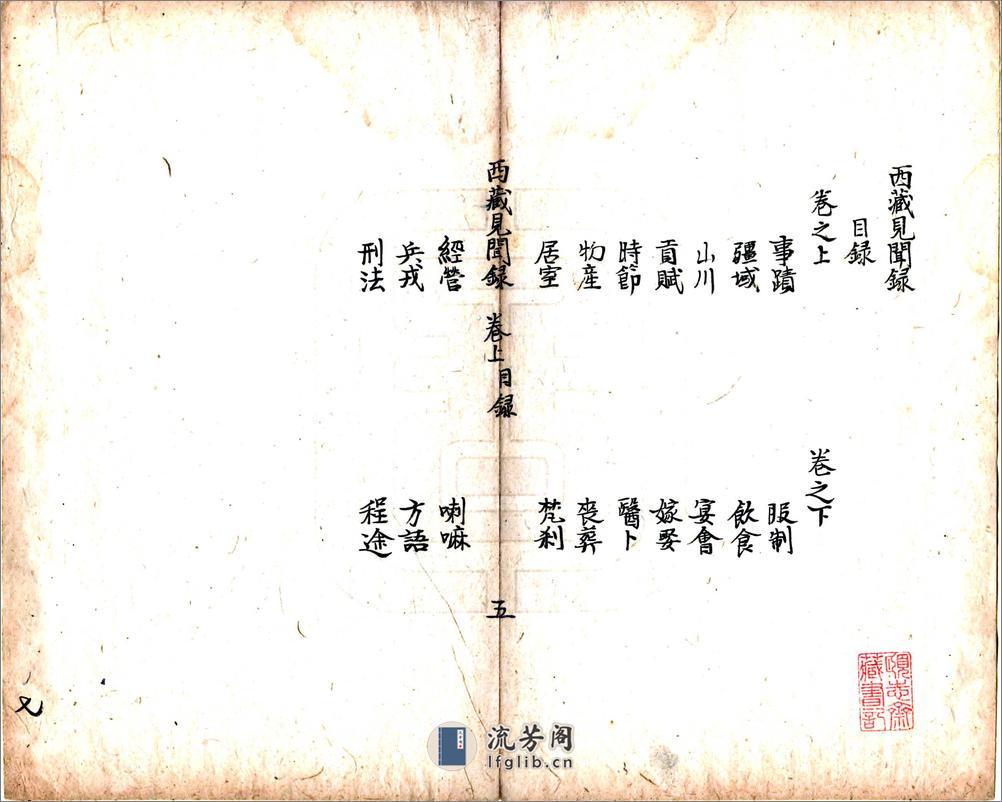 西藏見聞録
目録
卷之上
事蹟
疆域
山川
貢賦
時節
物産
居室
經營
兵戎
刑法
卷之下
服制
飲食
宴會
嫁娶
醫卜
喪葬
梵刹
喇嘛
方語
程途
西藏見聞録 卷上 目録
五
藏書記
流芳阁
lfglib.cn